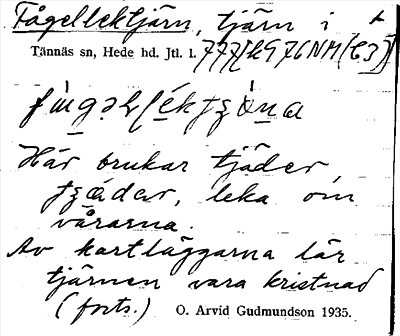 Fågellektjärn, tjärn i
Tännäs sn, Hede hd. Jtl. l.
Här brukar tjäder,
leka om
vårarna.
Av kartläggarna lär
tjärnen vara kristnad
(forts.) O. Arvid Gudmundson 1935.